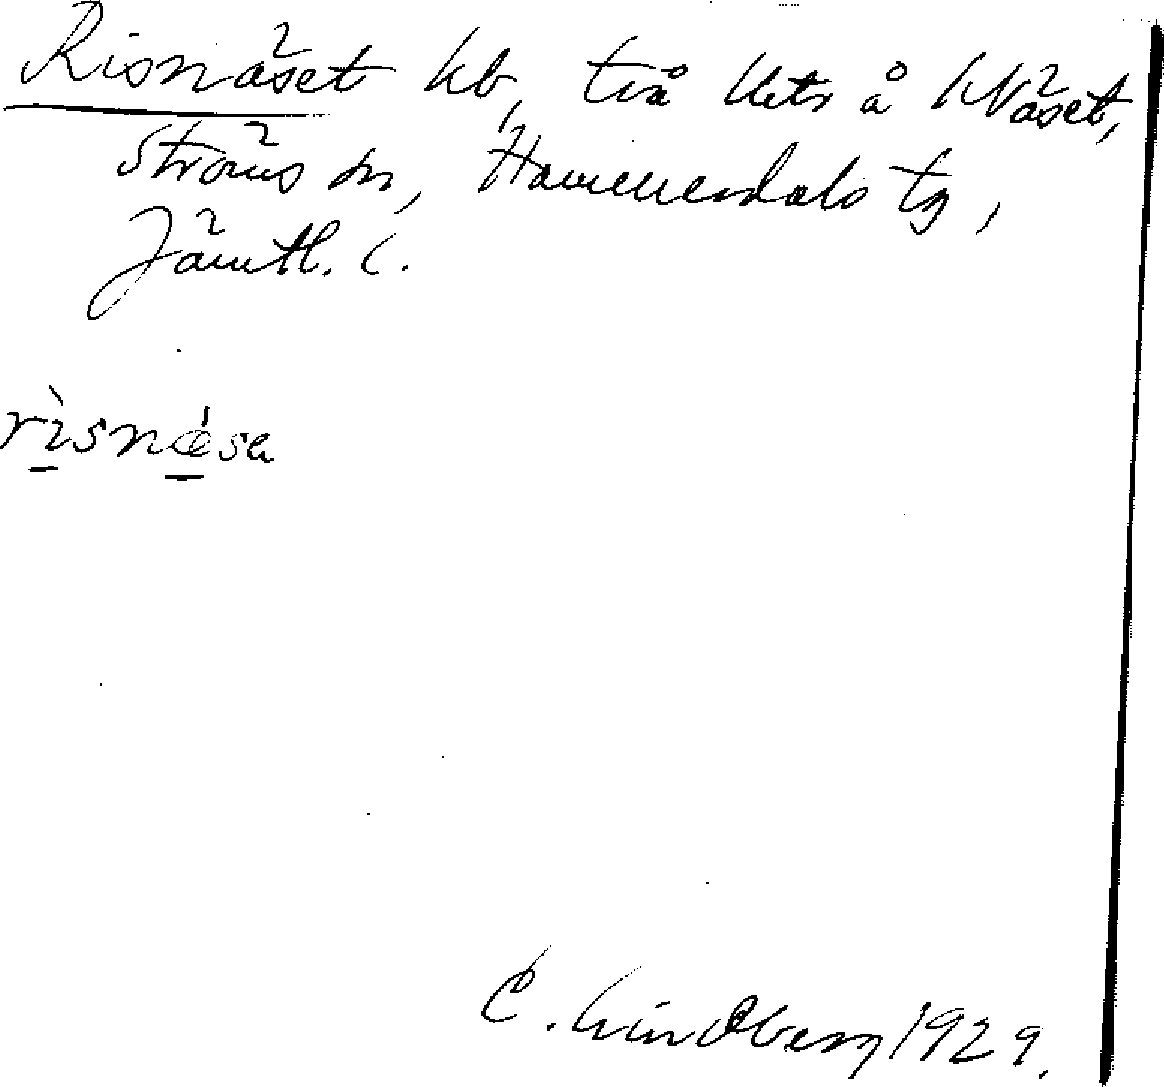 Risnäset hb, två klets å Näset,
Ströms sn, Hammerdals tg,
Jämtl. l.
rìsnǽsa
C. Lindberg 1929.